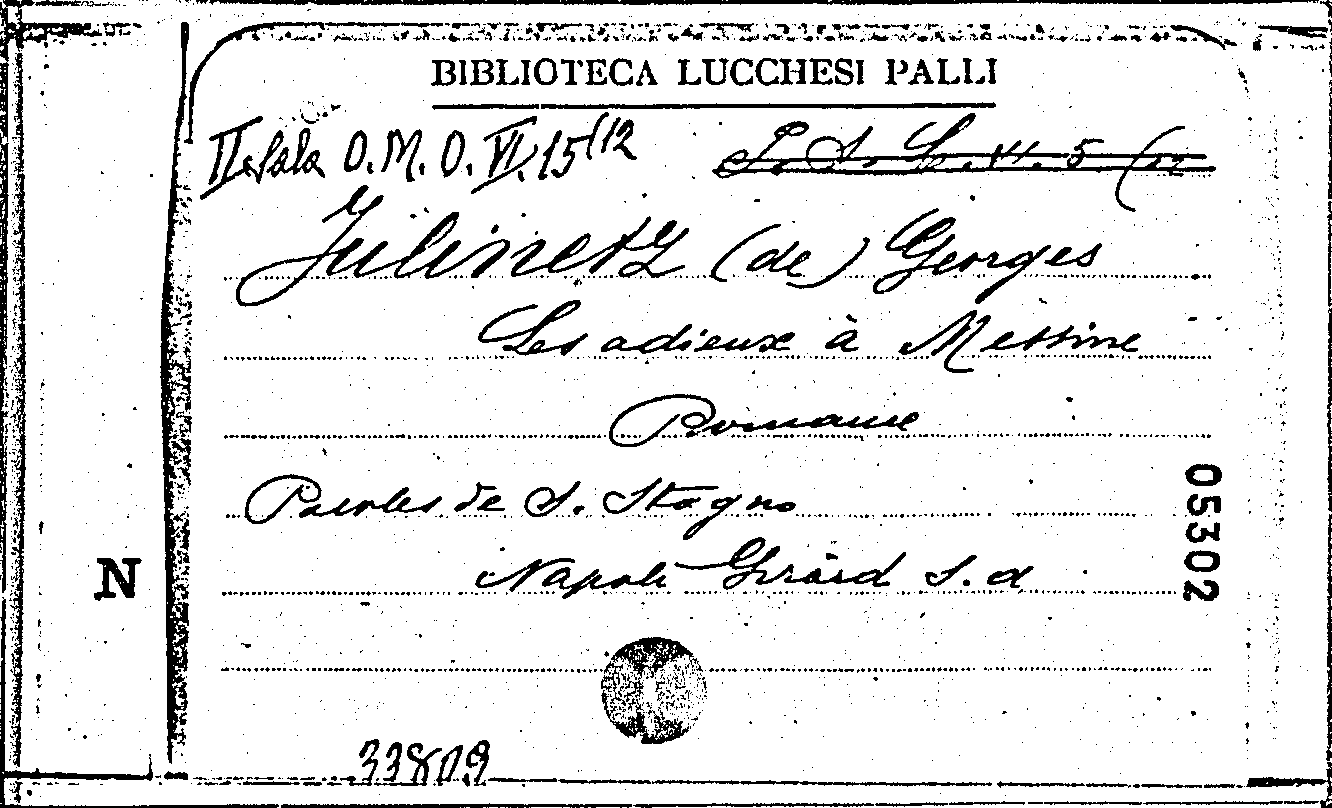 BIBLIOTECA LUCCHESI PALLI
II Sala O.M.O. VI. 15/12
Julinetz (de) Georges
Les adieux à Messine
Romance
Paroles de S. Stagno
Napoli Girard S. d
05302
N
33809